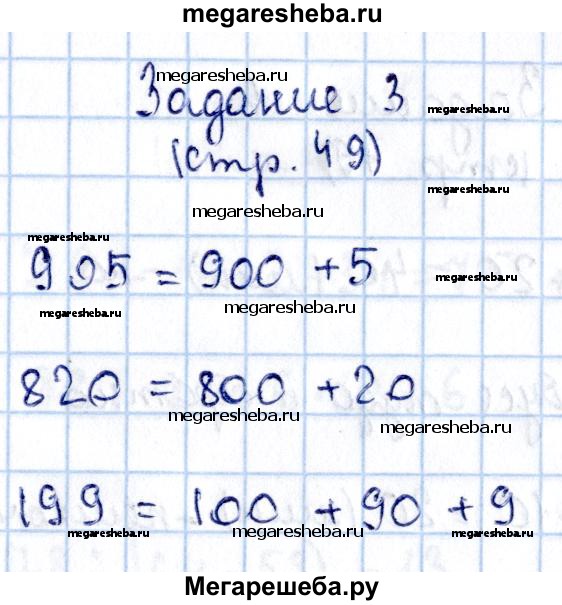 megaresheba.ru
megaresheba.ru
Задание 3
megaresheba.ru
(стр. 49)
megaresheba.ru
megaresheba.ru
megaresheba.ru
905 = 900 + 5
megaresheba.ru
megaresheba.ru
megaresheba.ru
820 = 800 + 20
megaresheba.ru
megaresheba.ru
199 = 100 + 90 + 9
megaresheba.ru
megaresheba.ru
megaresheba.ru
Мегарешеба.ру